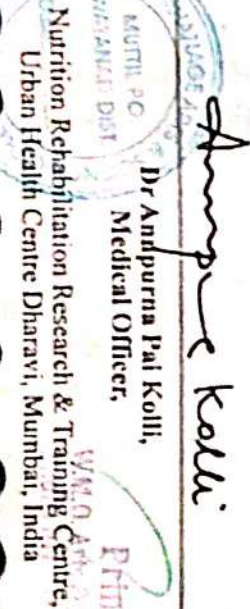 Annapurna Kolli
Dr Annpurna Pai Kolli,
Medical Officer,
Nutrition Rehabilitation Research & Training Centre,
Urban Health Centre Dharavi, Mumbai, India
MUTTIL PO
WAYANAD DIST
W.M.O. Arts
Prin